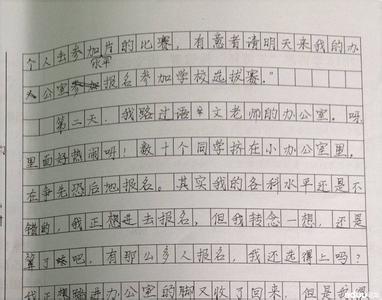 个人去参加片的比赛，有意者请明天来我的办
水平
公室参报名参加学校选拔赛。"
第二天，我路过语文老师的办公室。呀，
里面好热闹呀！数十个同学挤在小办公室里，
在争先恐后地报名。其实我的各科水平还是不
错的，我正想进去报名，但我转念一想，还是
算了吧，有那么多人报名，我还选得上吗？
我正想踏进办公室的脚又收了回来，但是我